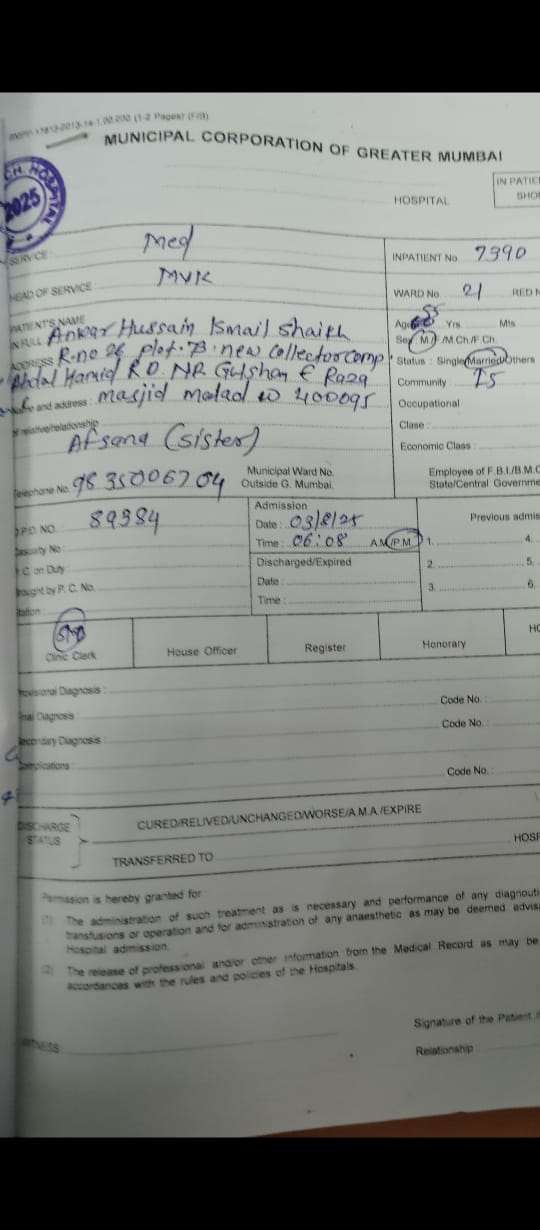 MUNICIPAL CORPORATION OF GREATER MUMBAI
HOSPITAL
IN PATIE
SHO
2025
SERVICE : Med
INPATIENT No. 7390
HEAD OF SERVICE MVK
WARD No. 21 RED N
PATIENT'S NAME
IN FULL Ankar Hussain Ismail Shaikh
Age Yrs. Mts
Sex M. /M.Ch./F.Ch.
ADDRESS R.no 26 plot.73. new Collector Comp
Status : Single/Married/Others
Abdal Hamid RD. NR Gulshan E Raza
Community :
and address : masjid malad w 400095
Occupational
of relative/relationship
Clase :
Afsana (sister)
Economic Class :
Telephone No. 98 35006704
Municipal Ward No.
Outside G. Mumbai.
Employee of F.B.I./B.M.C
State/Central Governme
P.D. NO. 89384
Admission
Date : 03/8/25
Time : 06:08 A.M./P.M.
Previous admis
1. 4.
2. 5.
3. 6.
Casualty No :
C. on Duty :
rought by P. C. No.
Station :
Discharged/Expired
Date :
Time :
Clinic Clerk
House Officer
Register
Honorary
HO
rovisional Diagnosis :
Code No. :
inal Diagnosis :
Code No. :
econdary Diagnosis :
omplications :
Code No. :
DISCHARGE
STATUS
CURED/RELIVED/UNCHANGED/WORSE/A.M.A./EXPIRE
TRANSFERRED TO
HOSP
Permission is hereby granted for
(1) The administration of such treatment as is necessary and performance of any diagnouti
transfusions or operation and for administration of any anaesthetic as may be deemed advis
Hospital admission.
(2) The release of professional and/or other information from the Medical Record as may be
accordances with the rules and policies of the Hospitals.
Signature of the Patient /
WITNESS
Relationship